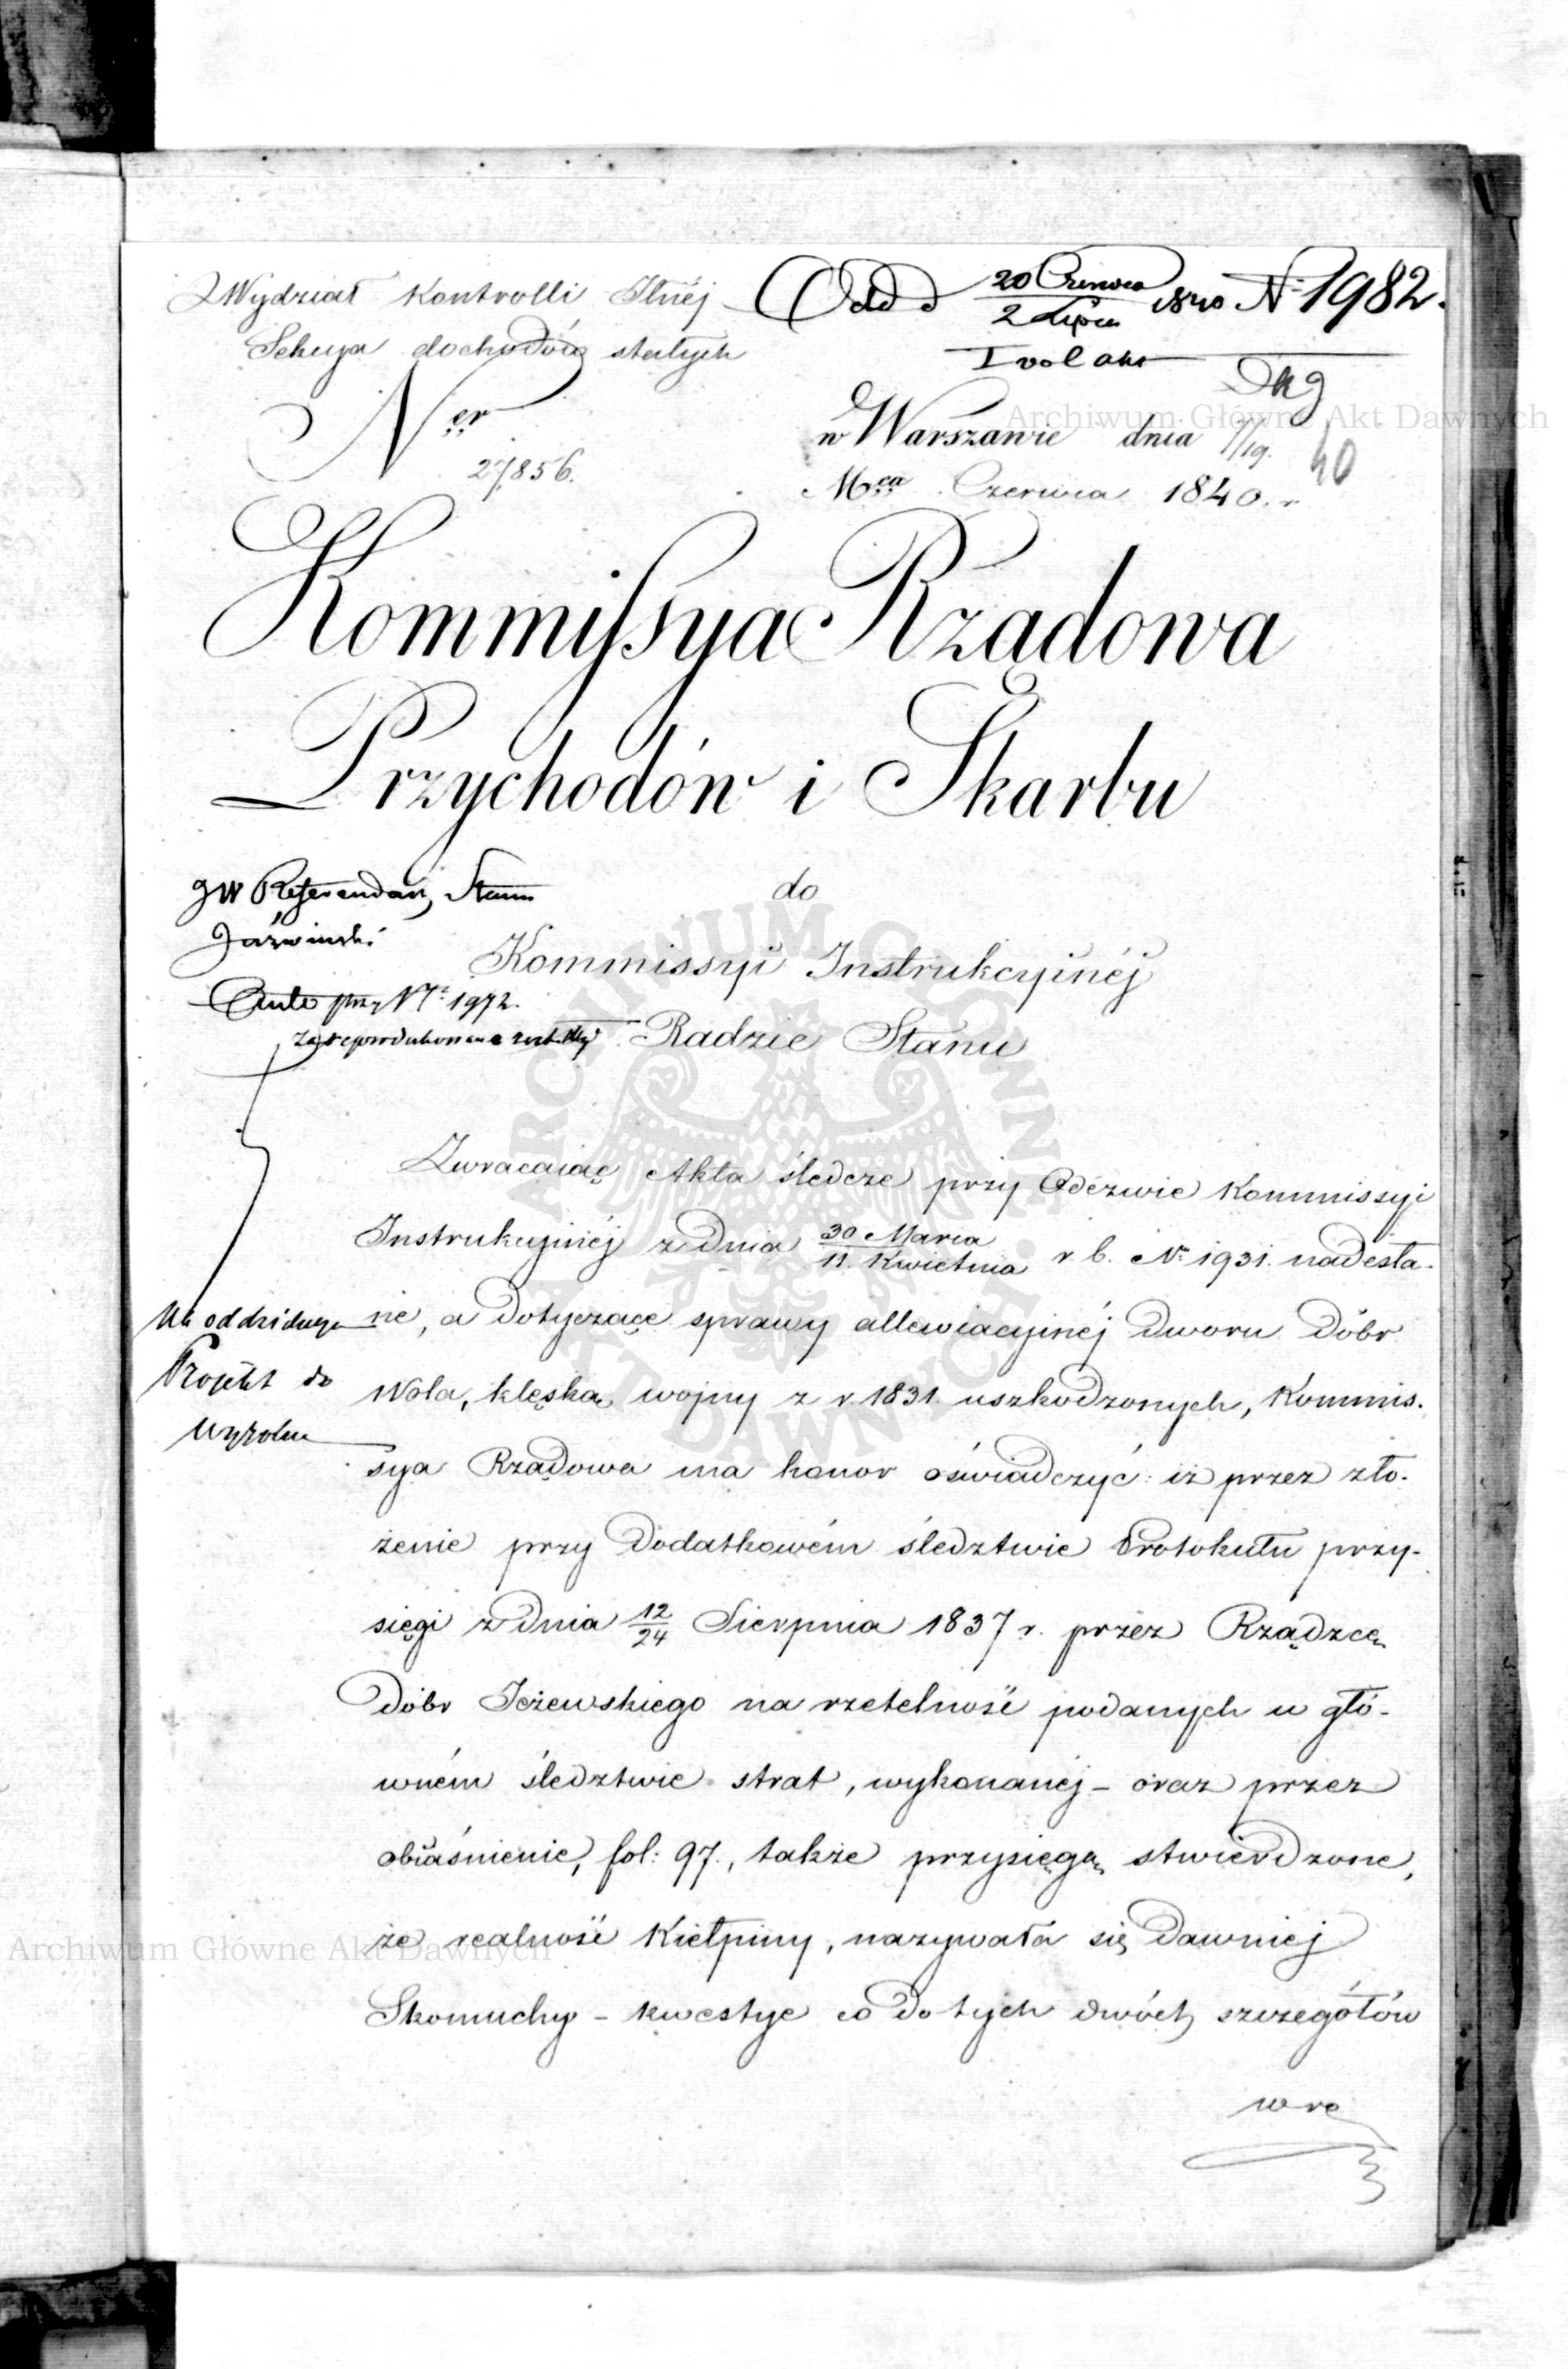 Wydział Kontrolli Ilnéj
Sekcya dochodów stałych
Ner
27856.
Odd 20 Czerwca / 2 Lipca 1840 N. 1982.
I vol akt
w Warszawie dnia 7/19.
Mca Czerwca 1840. r
40
Kommissya Rządowa
Przychodów i Skarbu
do
Kommissyi Instrukcyjnéj
Radzie Stanu
JW Referendarz Stanu
Jaźwiński
przy N. 1972.
Zwracaiąc Akta śledcze przy Odezwie Kommissyi
Instrukcyjnéj z dnia 30 Marca / 11 Kwietnia r. b. Nr 1931. nadesła-
ne, a dotyczące sprawy allewiacyjnéj Dworu Dóbr
Wola, klęską wojny z r. 1831. uszkodzonych, Kommis-
sya Rządowa ma honor oświadczyć: iż przez zło-
żenie przy Dodatkowém śledztwie Protokułu przy-
sięgi z dnia 12/24 Sierpnia 1837 r. przez Rządzcę
Dóbr Jeżewskiego na rzetelność podanych w głó-
wném śledztwie strat, wykonanéj - oraz przez
obiaśnienie, fol: 97., także przysięgą stwierdzone,
że realność Kiełpiny, nazywała się Dawniej
Skomuchy - kwestye co do tych dwóch szczegółów
wre
Projekt do
Wyroku
Archiwum Główne Akt Dawnych
Archiwum Główne Akt Dawnych
ARCHIWUM GŁÓWNE AKT DAWNYCH